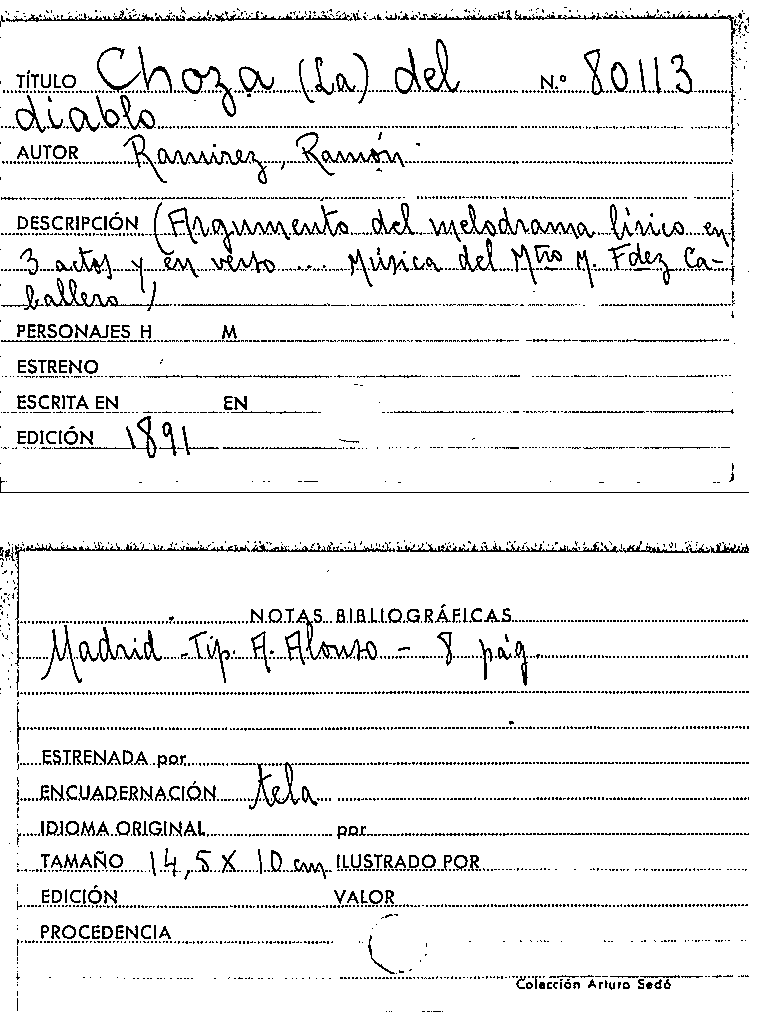 TÍTULO Choza (La) del N.º 80113
diablo
AUTOR Ramírez, Ramón
DESCRIPCIÓN (Argumento del melodrama lírico en
3 actos y en verso ... Música del Mtro M. Fdez Ca-
ballero)
PERSONAJES H M
ESTRENO
ESCRITA EN EN
EDICIÓN 1891
NOTAS BIBLIOGRÁFICAS
Madrid - Tip. A. Alonso - 8 pág.
ESTRENADA por
ENCUADERNACIÓN tela
IDIOMA ORIGINAL por
TAMAÑO 14,5 X 10 cm ILUSTRADO POR
EDICIÓN VALOR
PROCEDENCIA
Colección Arturo Sedó